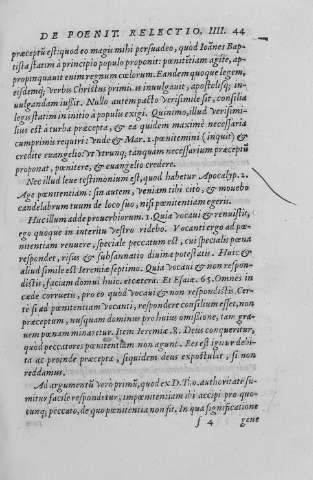 DE POENIT. RELECTIO. IIII. 44
præceptũ est: quod eo magis mihi persuadeo, quod Ioãnes Bap-
tista statim à principio populo proponit: pœnitẽtiam agite, ap-
propinquauit enim regnum cœlorum. Eandem quoque legem,
eisdemq; verbis Christus primũ se inuulgauit, apostolisq; in-
uulgandam iussit. Nullo autem pacto verisimile sit, consilia
legis statim in initio à populu exigi. Quinimo, illud verisimi-
lius est à turba præcepta, & ea quidem maximè necessaria
cumprimis requiri: vnde & Mar. 1. pœnitemini (inquit) &
credite euangelio: vt vtrunq; tanquam necessarium præceptũ
proponat, pœnitere, & euangelio credere.
Nec illud leue testimonium est, quod habetur Apocalyp. 2.
Age pœnitentiam: sin autem, veniam tibi citò, & mouebo
candelabrum tuum de loco suo, nisi pœnitentiam egeris.
Huc illum adde prouerbiorum. 1. Quia vocaui & renuistis,
ego quoque in interitu vestro ridebo. Vocanti ergo ad pœ-
nitentiam renuere, speciale peccatum est, cui specialis pœna
respondet, risus & subsannatio diuinæ potestatis. Huic &
aliud simile est Ieremiæ septimo. Quia vocaui & non respon-
distis, faciam domui huic. etcætera. Et Esaiæ. 65. Omnes in
cæde corruetis, pro eo quòd vocaui & non respondistis. Cer-
tè si ad pœnitentiam vocanti, respondere consilium esset, non
præceptum, nusquam dominus pro huius omissione, tam gra-
uem pœnam minaretur. Item Ieremiæ. 8. Deus conqueritur,
quod peccatores pœnitentiam non agunt. Res est igitur debi-
ta ac proinde præcepta, siquidem deus expostulat, si non
reddamus.
Ad argumentũ verò primũ, quod ex D. Tho. authoritate su-
mitur facile respondetur, impœnitentiam ibi accipi pro quo-
cunq; peccato, de quo pœnitentia non fit. In qua significatione
f 4 gene